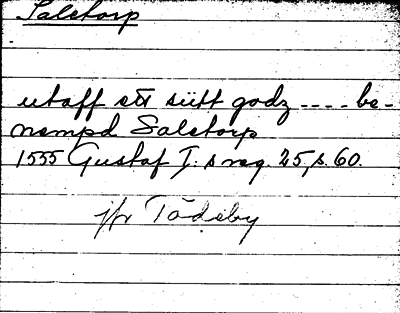 Salstorp
utaff ett sütt godz ---- be-
nempd Salstorp
1555 Gustaf I:s reg. 25, s. 60.
jfr Tådeby